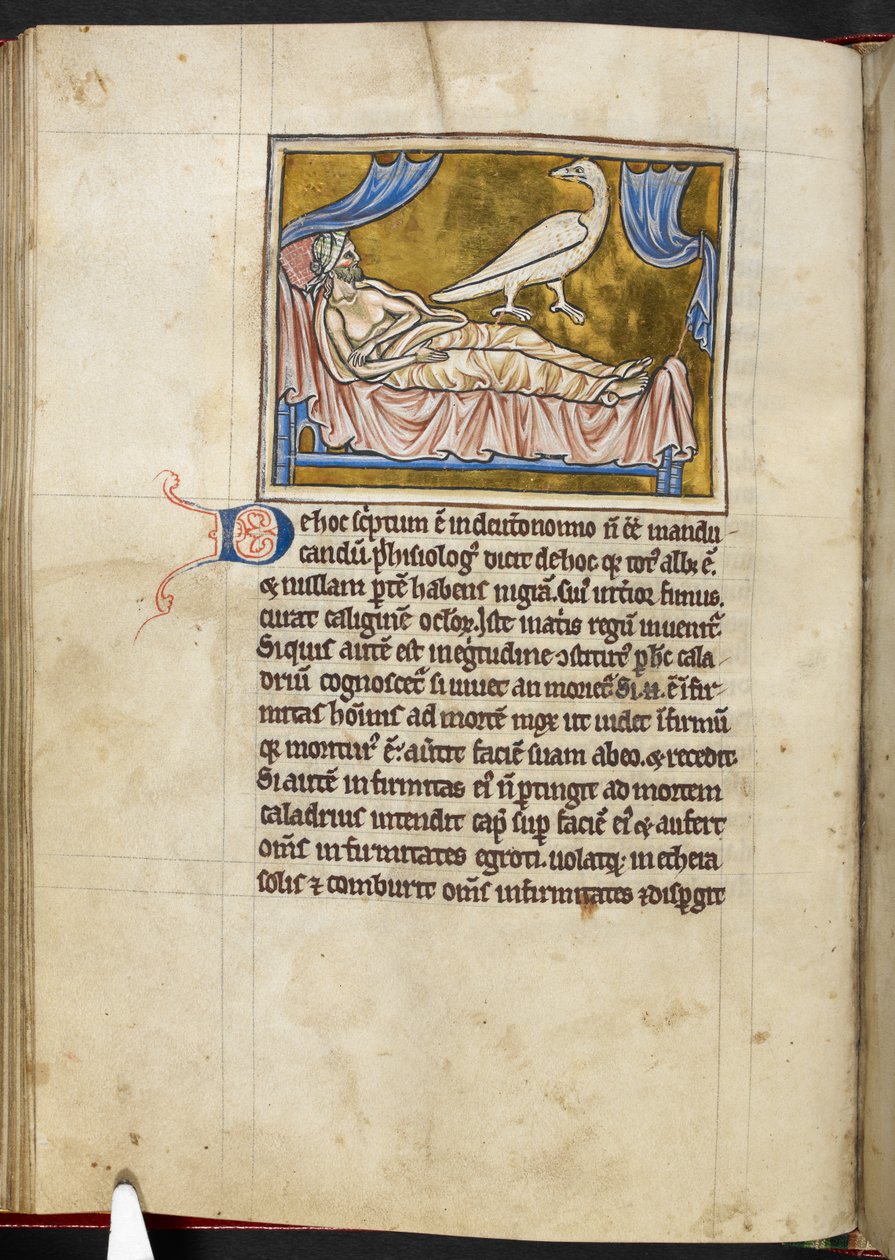 De hoc sc̔ptum ē in deut̄onomio ñ ēē mandu-
candū phisiologꝰ dicit de hoc· qꝛ totꝰ albꝰ ē.
& nullam ꝑtē habens nig̃m. Cuiꝰ int̓ior fimus.
curat caliginē oclōꝝ. Iste in at̓is regū inuenit᷑.
Si quis autē est in eg̓tudine ↄstitutꝰ ꝑ hc̄ cala-
driū cognoscet᷑ si uiuet an moriet᷑. Si .n. ē ifir-
mitas hoīnis ad mortē mox ut uidet īfirmū
qꝛ moriturꝰ ē: au̓tit faciē suam ab eo. & recedit.
Si autē infirmitas eiꝰ ñ ꝑtingit ad mortem
caladrius intendit cap̄ suꝑ faciē eiꝰ & aufert
om̄s infirmitates egroti. uolatqꝫ in etheia
solis ⁊ comburit om̄s infirmitates ⁊ disꝑgit